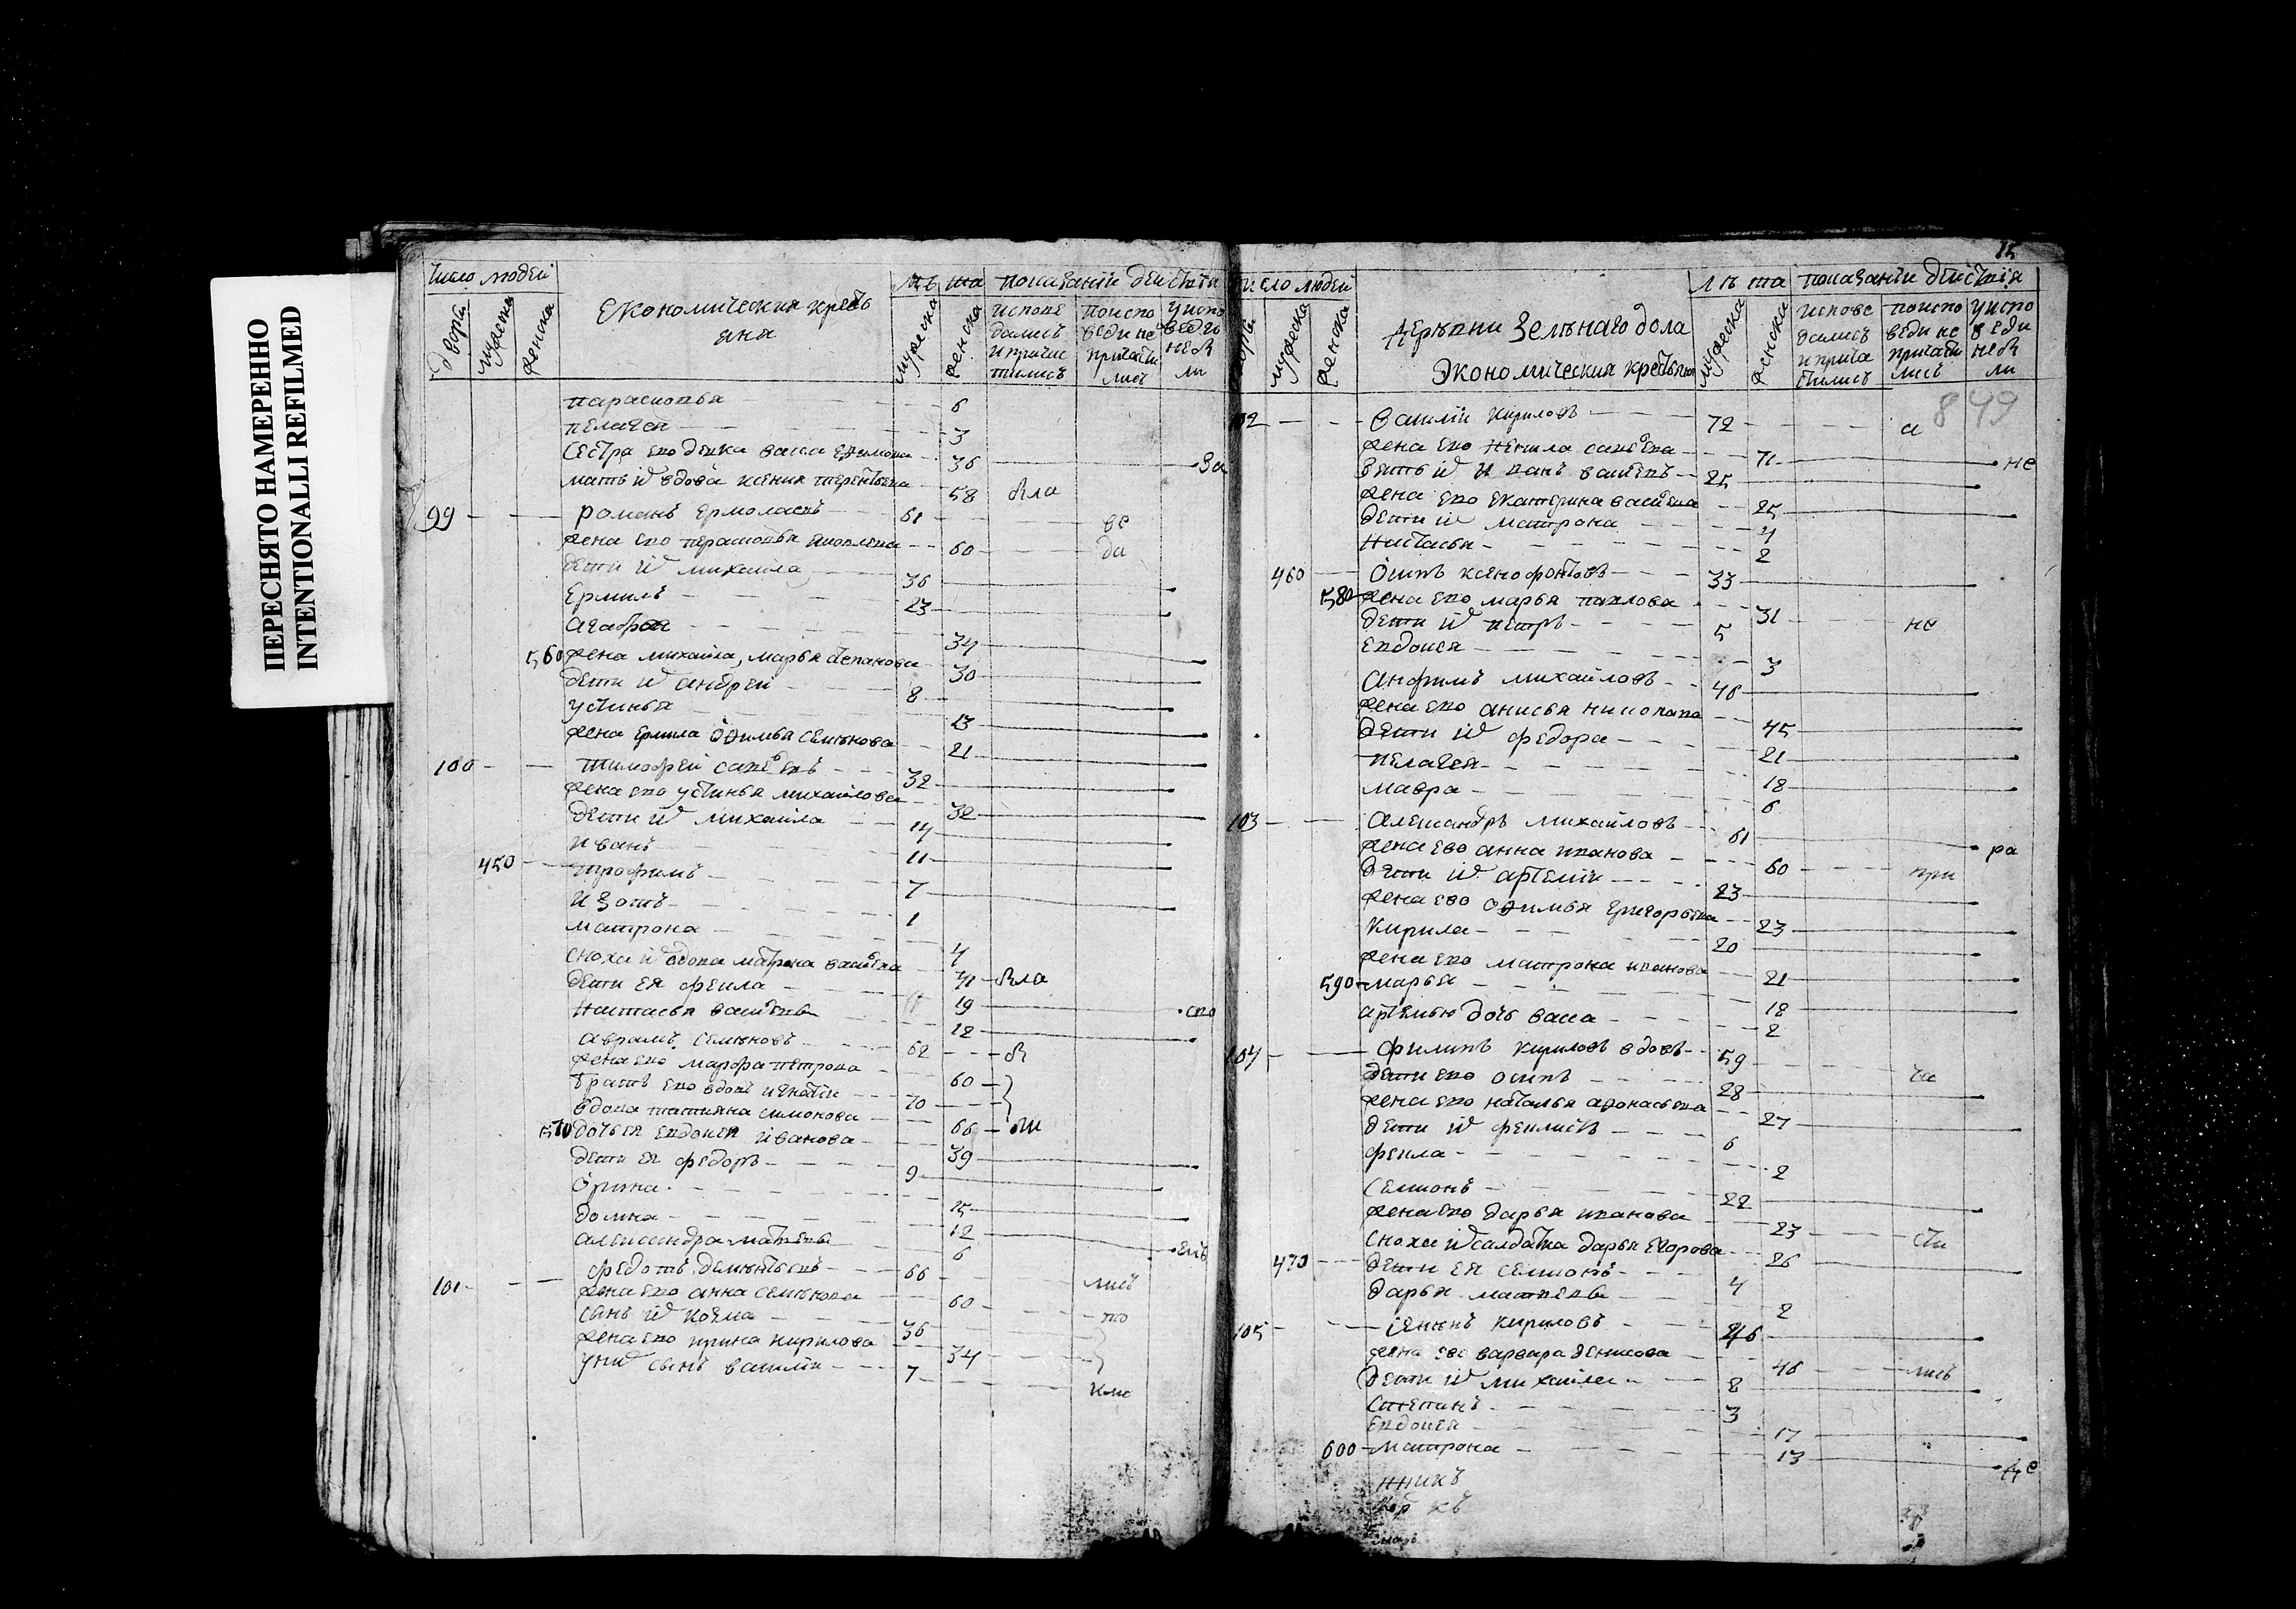 ПЕРЕСНЯТО НАМЕРЕННО
INTENTIONALLI REFILMED
Число людей
двора
мужеска
женска
Економическия кресть
яня
лѣта
мужеска
женска
показанїи действия
испове
дались
и приче
тились
поиспо
веди не
причати
лись
у испо
веди
небы
ли
парасковья 6
пелагея 3
сестра ево девка васса 36
мать их вдова ксения терентьева 58
99 романъ ермолаевъ 61
жена ево парасковья яковлева 60
дети их михайла 36
Ермилъ 23
агафья 34
560 жена михайла, марья степанова 30
дети их андрей 8
устинья 13
жена ермила офимья семенова 21
100 тимофей савельевъ 32
жена ево устинья михайлова 32
дети их михайла 14
иванъ 11
450 трофимъ 7
изотъ 1
матрона 4
сноха их вдова матрена васильева 41
дети ея фекла 19
настасья васильева 12
аврамъ семеновъ 62
жена ево марфа петрова 60
братъ ево вдовъ игнатей 70
вдова татияна симонова 66
570 дочь ея евдокея иванова 39
дети ея федоръ 9
орина 15
домна 12
александра матвева 6
101 федотъ дементьевъ 66
жена ево анна семенова 60
сынъ их козма 36
жена ево ирина кирилова 34
у них сынъ василей 7
15
число людей
двора
мужеска
женска
деревни Зеленаго дола
Экономическия крестьяня
лѣта
мужеска
женска
показанїи действїя
испове
дались
и прича
тились
поиспо
веди не
причати
лись
у испо
веди
небы
ли
849
102 василїи кириловъ 72
жена ево ненила савельева 71
зеть их иванъ васильевъ 25
жена ево екатерина васильева 25
дети их матрона 4
настасья 2
460 осипъ ксенофонтовъ 33
580 жена ево марья павлова 31
дети их петръ 5
евдокея 3
анфимъ михайловъ 46
жена ево анисья никонова 45
дети их федора 21
пелагея 18
мавра 6
103 александръ михайловъ 61
жена ево анна иванова 60
дети их артемїи 23
жена ево офимья григорьева 23
кирила 20
жена ево матрона иванова 21
590 марья 18
артемью дочь васса 2
104 филипъ кириловъ вдовъ 59
дети ево осипъ 28
жена ево наталья афонасьева 27
дети их феклистъ 6
фекла 2
семионъ 22
жена ево дарья иванова 23
сноха их салдатка дарья егорова 26
470 дети ея семионъ 4
дарья матвева 2
105 семенъ кириловъ 46
жена ево варвара денисова 46
дети их михайла 8
степанъ 3
евдокея 17
600 матрона 13